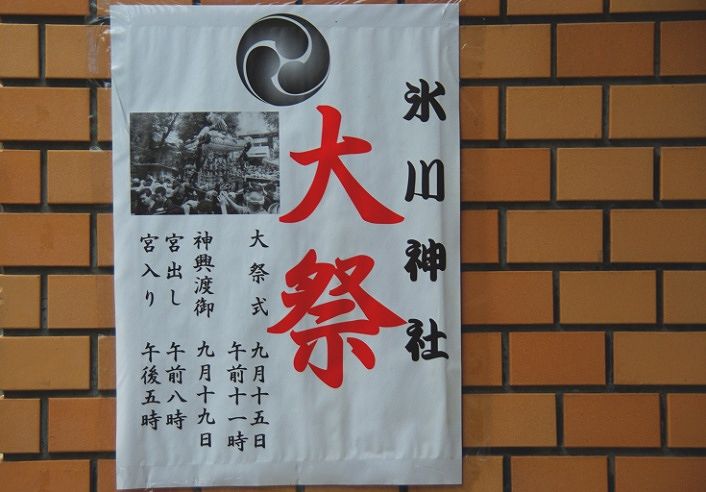 氷川神社
大祭
大祭式 九月十五日
午前十一時
神興渡御 九月十九日
宮出し 午前八時
宮入り 午後五時